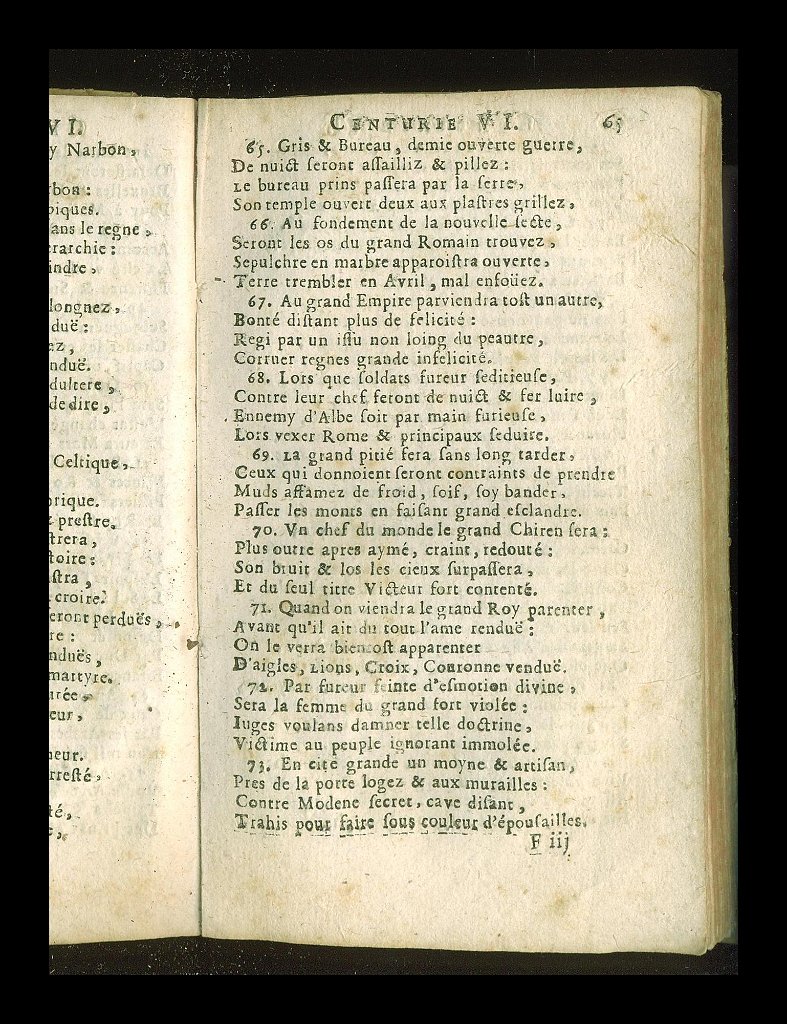 VI.
y Narbon,
rbon:
piques.
ans le regne,
rarchie:
indre,
longnez,
duë:
ez,
nduë.
dultere,
de dire,
Celtique,
brique.
preſtre.
trera,
toire:
ſtra,
croire.
eront perduës,
re:
nduës,
martyre.
urée,
eur,
neur.
rreſté,
té,
e,
CENTURIE VI. 65
65. Gris & Bureau, demie ouverte guerre,
De nuict ſeront aſſailliz & pillez:
Le bureau prins paſſera par la ſerre,
Son temple ouvert deux aux plaſtres grillez,
66. Au fondement de la nouvelle ſecte,
Seront les os du grand Romain trouvez,
Sepulchre en marbre apparoiſtra ouverte,
Terre trembler en Avril, mal enfoüez.
67. Au grand Empire parviendra toſt un autre,
Bonté diſtant plus de felicité:
Regi par un iſſu non loing du peautre,
Corruer regnes grande infelicité.
68. Lors que ſoldats fureur ſeditieuſe,
Contre leur chef feront de nuict & fer luire,
Ennemy d'Albe ſoit par main furieuſe,
Lors vexer Rome & principaux ſeduire.
69. La grand pitié ſera ſans long tarder,
Ceux qui donnoient ſeront contraints de prendre
Nuds affamez de froid, ſoif, ſoy bander,
Paſſer les monts en faiſant grand eſclandre.
70. Vn chef du monde le grand Chiren ſera:
Plus outre apres aymé, craint, redouté:
Son bruit & los les cieux ſurpaſſera,
Et du ſeul titre Victeur fort contenté.
71. Quand on viendra le grand Roy parenter,
Avant qu'il ait du tout l'ame renduë:
On le verra bien toſt apparenter
D'aigles, Lions, Croix, Couronne venduë.
72. Par fureur feinte d'eſmotion divine,
Sera la femme du grand fort violée:
Iuges voulans damner telle doctrine,
Victime au peuple ignorant immolée.
73. En cité grande un moyne & artiſan,
Pres de la porte logez & aux murailles:
Contre Modene ſecret, cave diſant,
Trahis pour faire ſous couleur d'épouſailles.
F iij